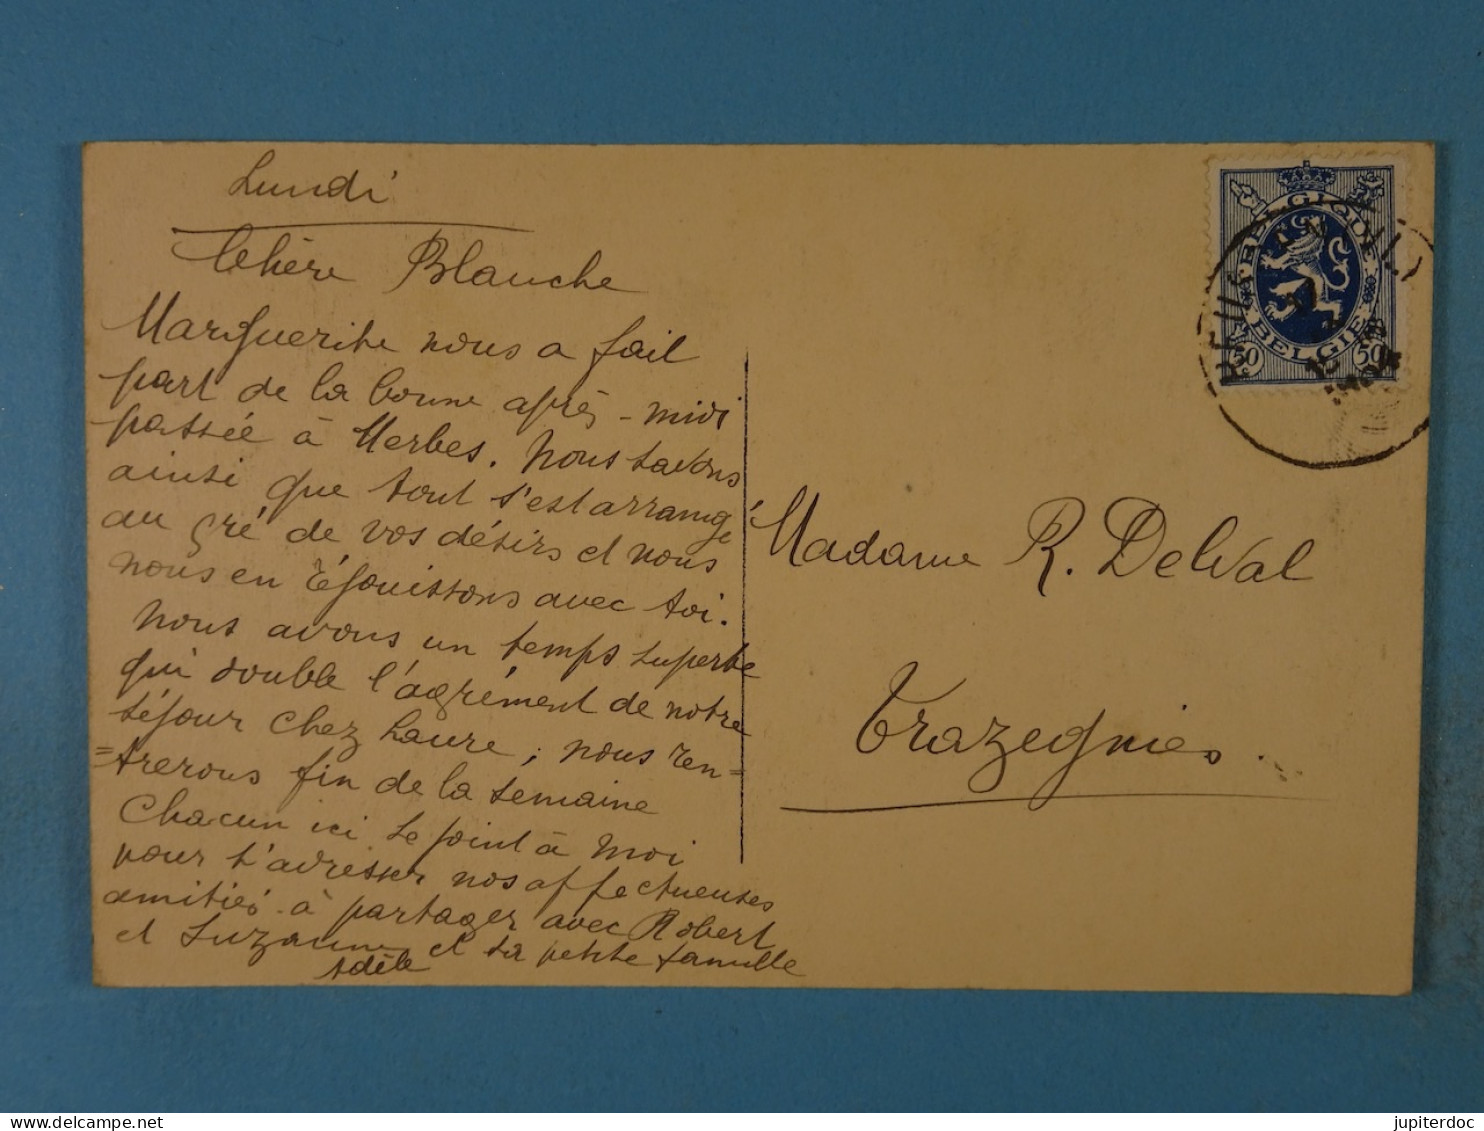 Lundi
Chère Blanche
Marguerite nous a fait
part de la bonne après-midi
passée à Merbes. Nous savons
ainsi que tout s'est arrangé
au gré de vos désirs et nous
nous en réjouissons avec toi.
Nous avons un temps superbe
qui double l'agrément de notre
séjour chez Laure; nous ren=
=trerons fin de la semaine
Chacun ici se joint à moi
pour t'adresser nos affectueuses
amitiés à partager avec Robert
et Suzanne et sa petite famille
Adèle
BELGIQUE
BELGIE
50 50
Madame R. Delval
Trazegnies.
jupiterdoc